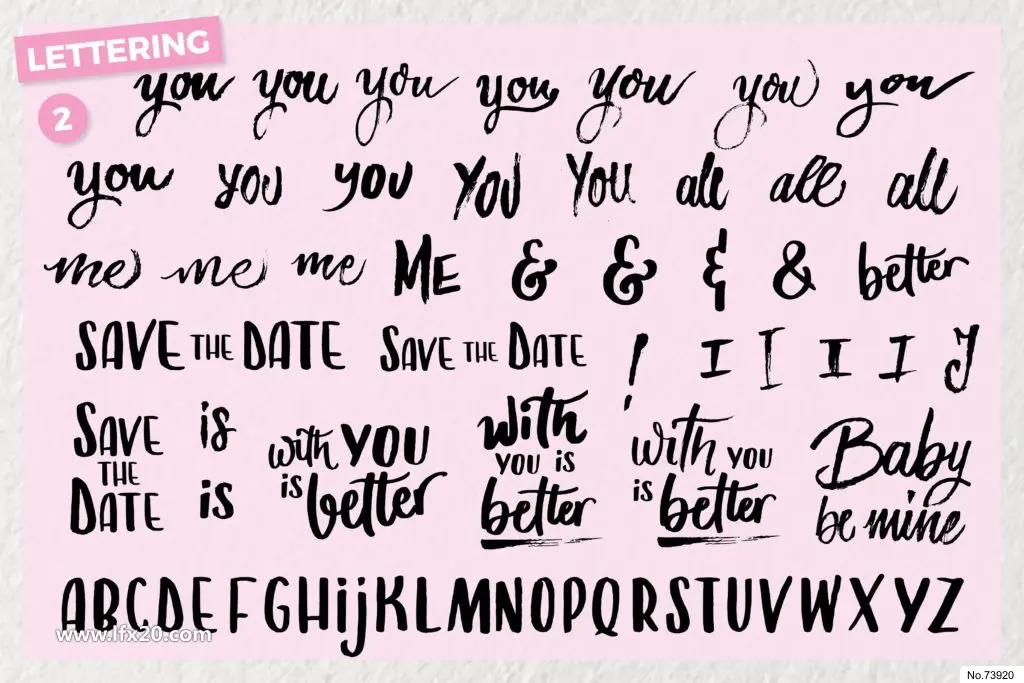 LETTERING
2
you you you you you you you
you you you You You all all all
me me me ME & & & & better
SAVE THE DATE SAVE THE DATE ! I I I I J
SAVE THE DATE
is
is
with YOU
is better
with
YOU IS
better
with YOU
is better
Baby
be mine
ABCDEFGHijKLMNOPQRSTUVWXYZ
www.lfx20.com
No.73920